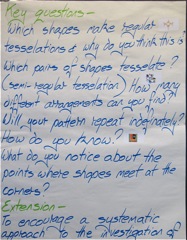 Key questions -
Which shapes make regular
tesselations & why do you think this is?
Which pairs of shapes tesselate?
(semi-regular tesselation) How many
different arrangements can you find?
Will your pattern repeat indefinately?
How do you know?
What do you notice about the
points where shapes meet at the
corners?
Extension -
To encourage a systematic
approach to the investigation of